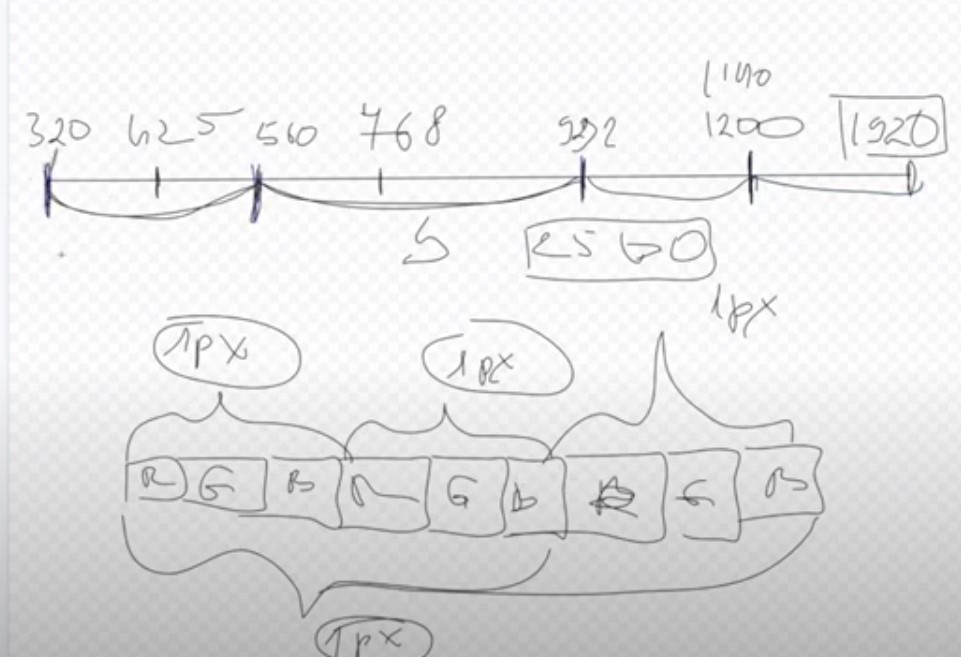 1140
320 425 560 768 992 1200 1920
2560
1px
1px 1px
R G B R G B R G B
1px